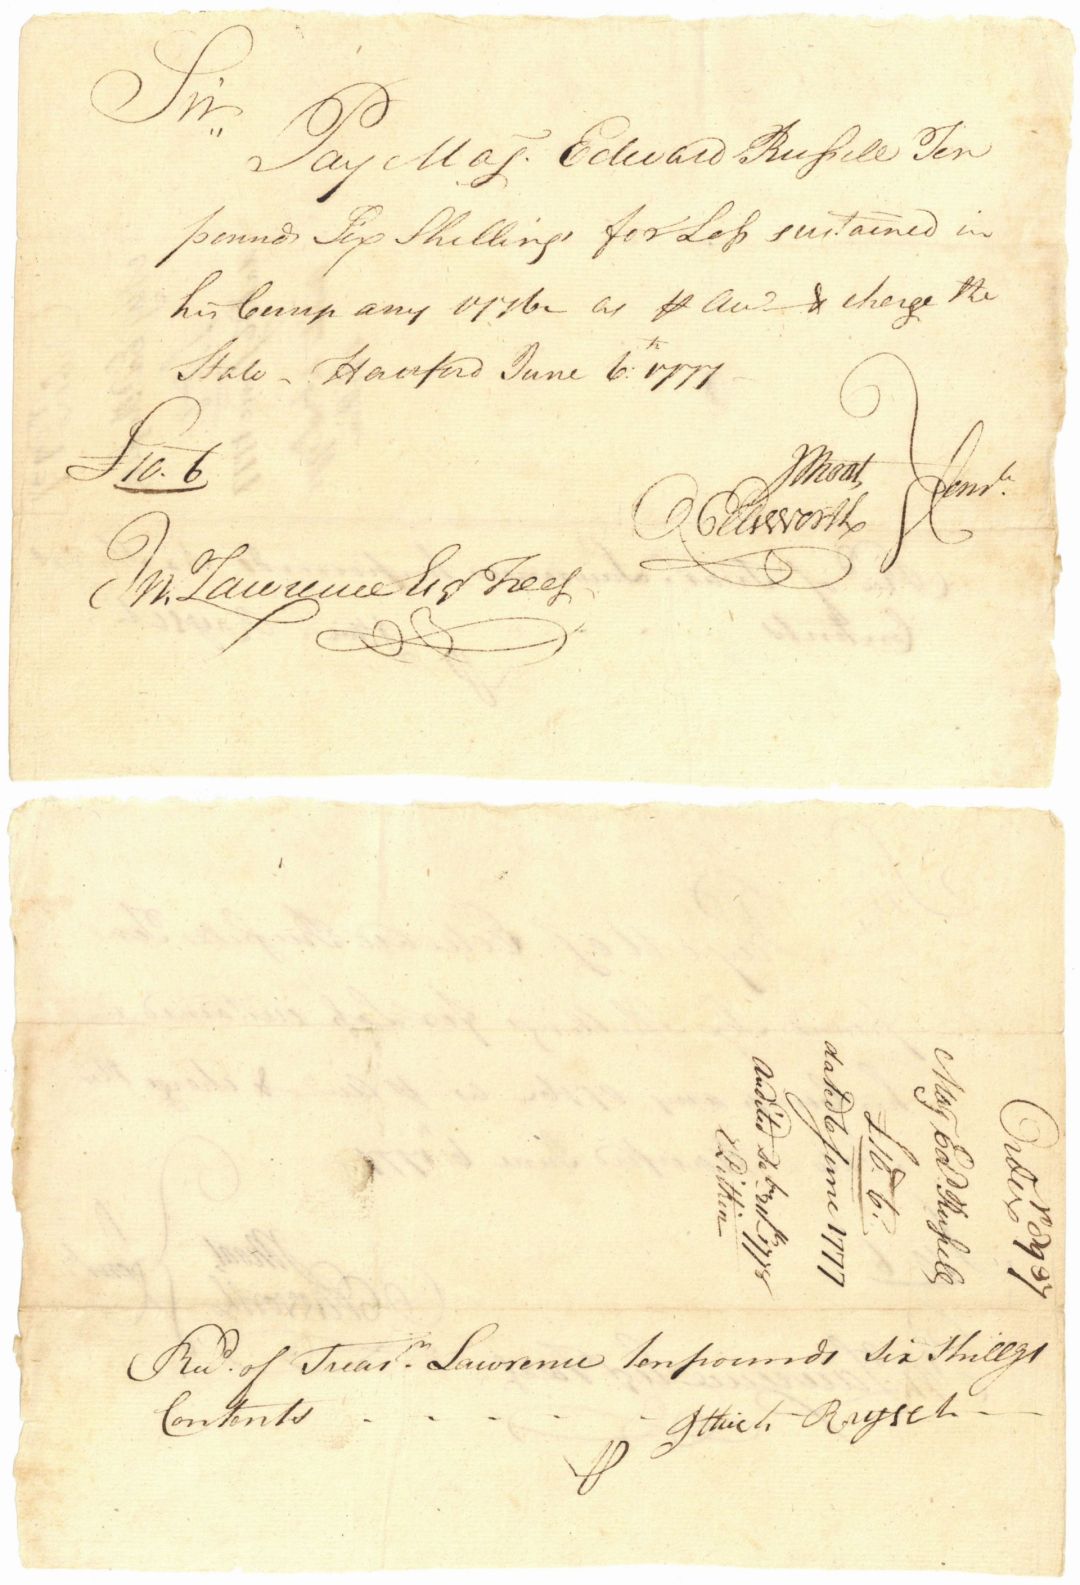 Sir,,
Pay Maj. Edward Russell Ten
pounds Six Shillings for Loss sustained in
his Company 1776 as ⅌ Acc.ᵗ & charge the
State - Hartford June 6.ᵗʰ 1777 -
£10. 6
J Mott
O Ellsworth
Comᵗᵉ.
Jn. Lawrence Esqʳ Treasʳ
Order Nº 2937
Maj Edᵈ. Russell
£10. 6.
dated 6 June 1777
Audited
1778
E Pitkin
Recᵈ. of Treasʳ. Lawrence ten pounds six Shillgs
Contents - - - - - -